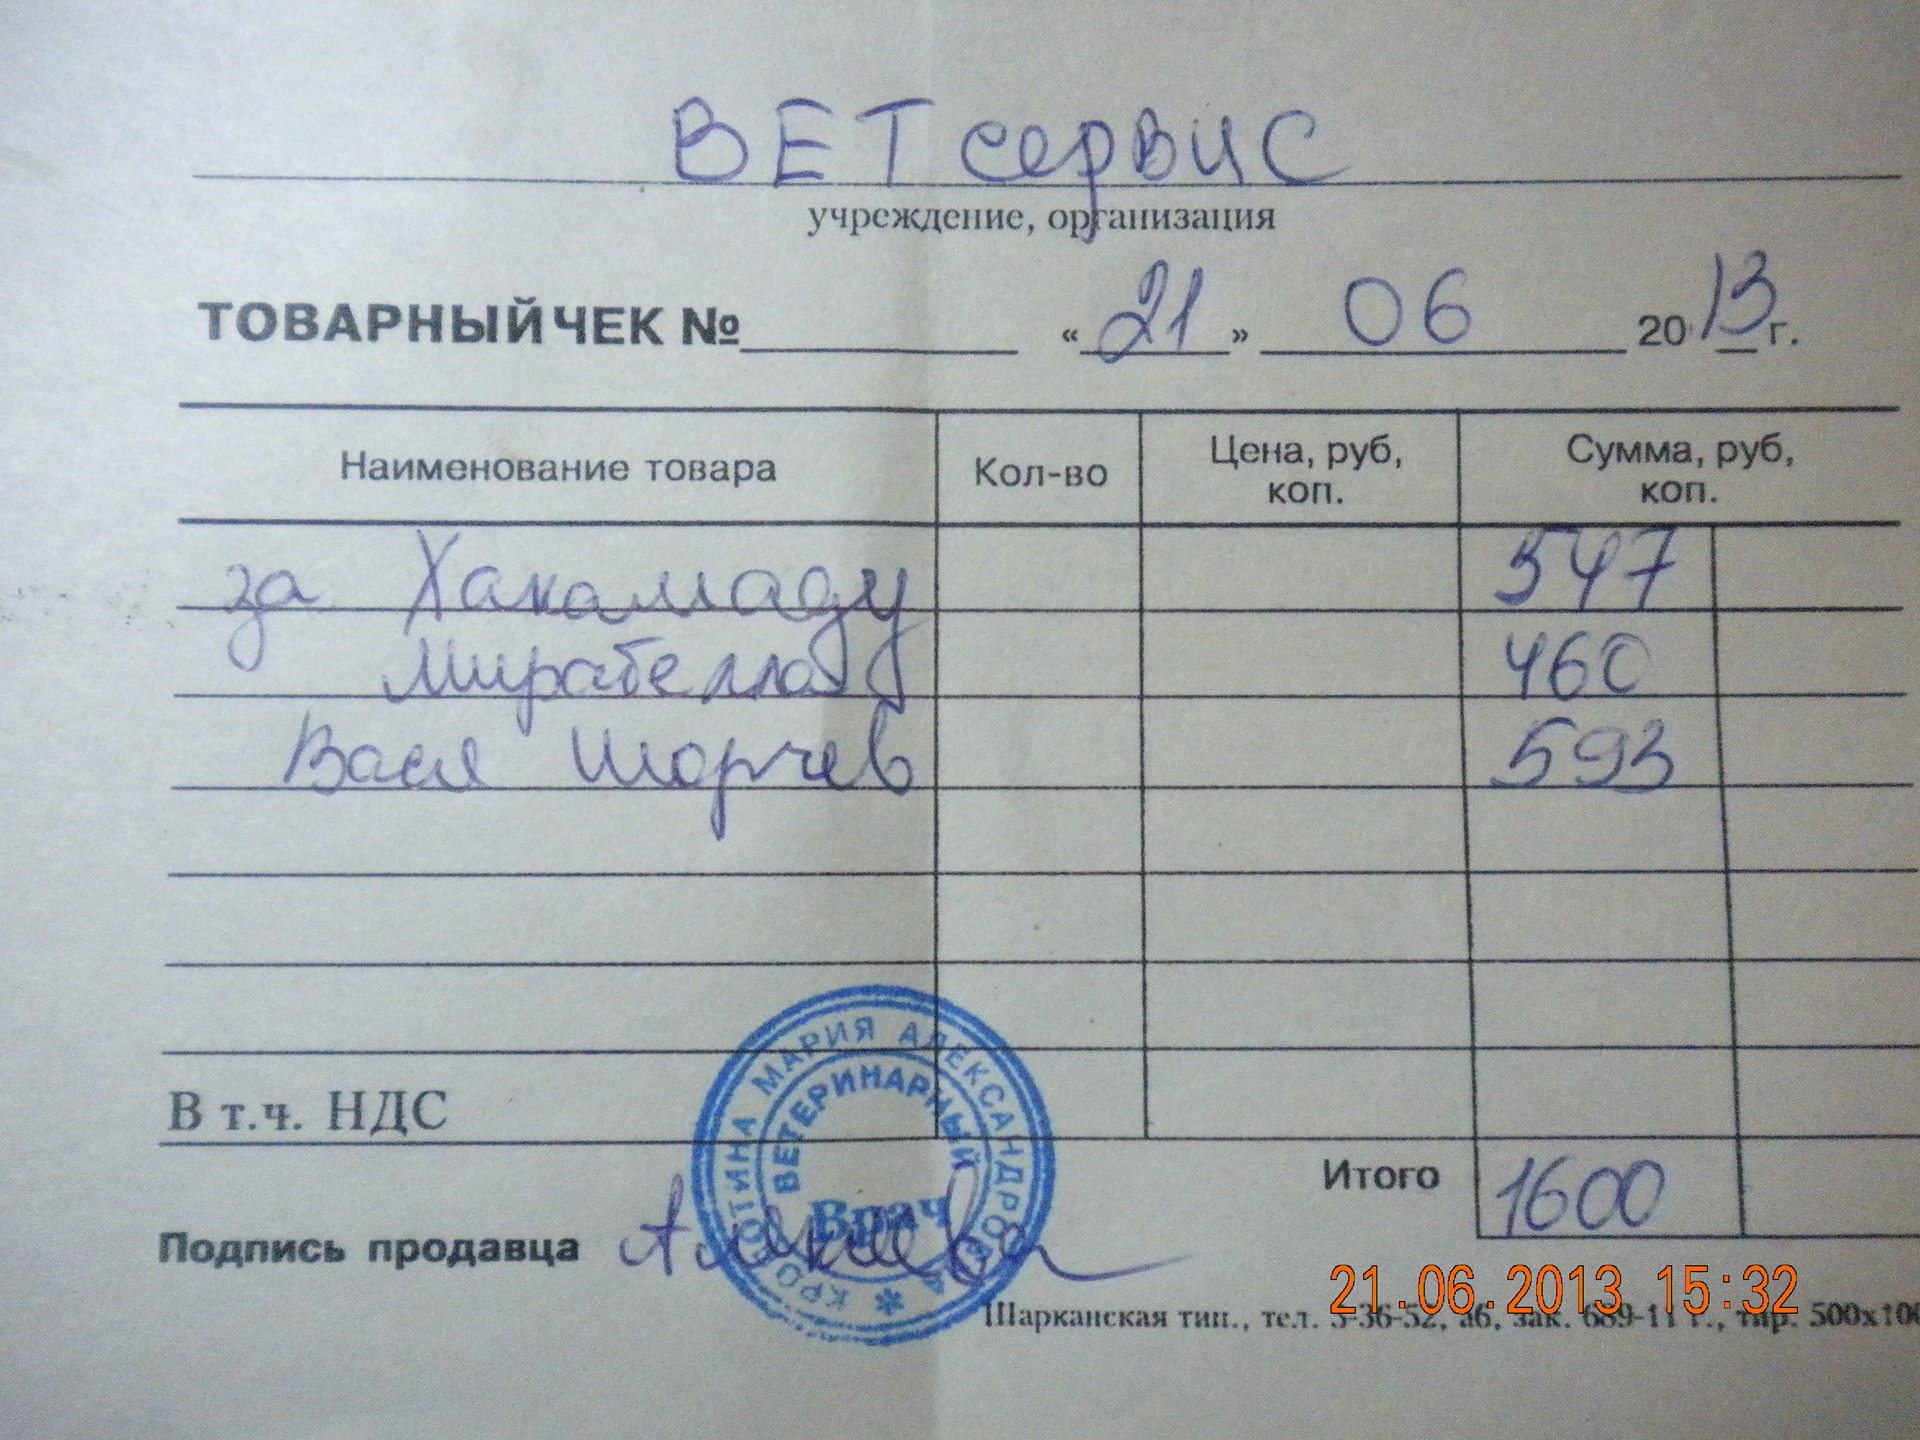 ВЕТсервис
учреждение, организация
ТОВАРНЫЙ ЧЕК № « 21 » 06 2013 г.
Наименование товара Кол-во Цена, руб, коп. Сумма, руб, коп.
за Хакамаду 547
Мирабелла 460
Вася Шорчев 593
В т.ч. НДС
МАРИЯ АЛЕКСАНДРОВНА
ВЕТЕРИНАРНЫЙ
Врач
Итого 1600
Подпись продавца
21.06.2013 15:32
Шарканская тип., тел. 3-36-52, а6, зак. 689-11 г., тир. 500х100